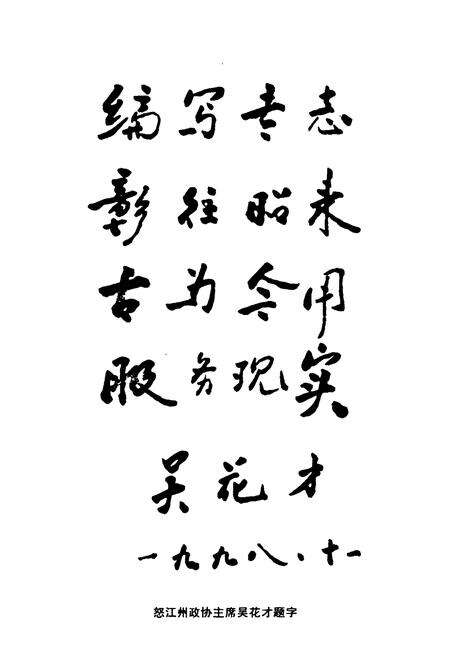 编写专志
彰往昭来
古为今用
服务现实
吴花才
一九九八、十一
怒江州政协主席吴花才题字